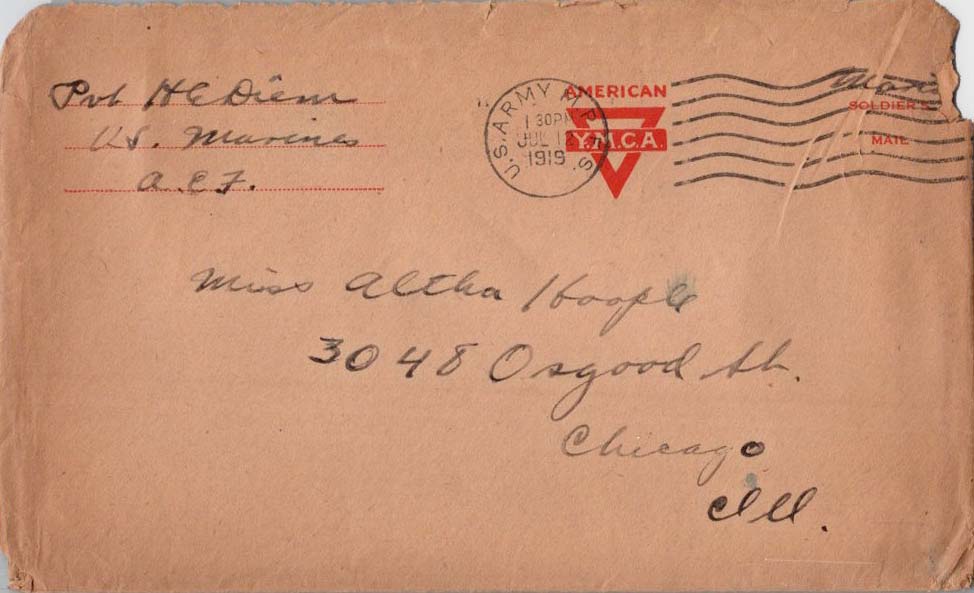 Pvt H E Diem
U.S. Marines
A.E.F.
U.S. ARMY M.P.E.S.
1 30PM
JUL 12
1919
AMERICAN
Y.M.C.A.
SOLDIER'S
MAIL
Miss Altha Hoople
3048 Osgood St.
Chicago
Ill.